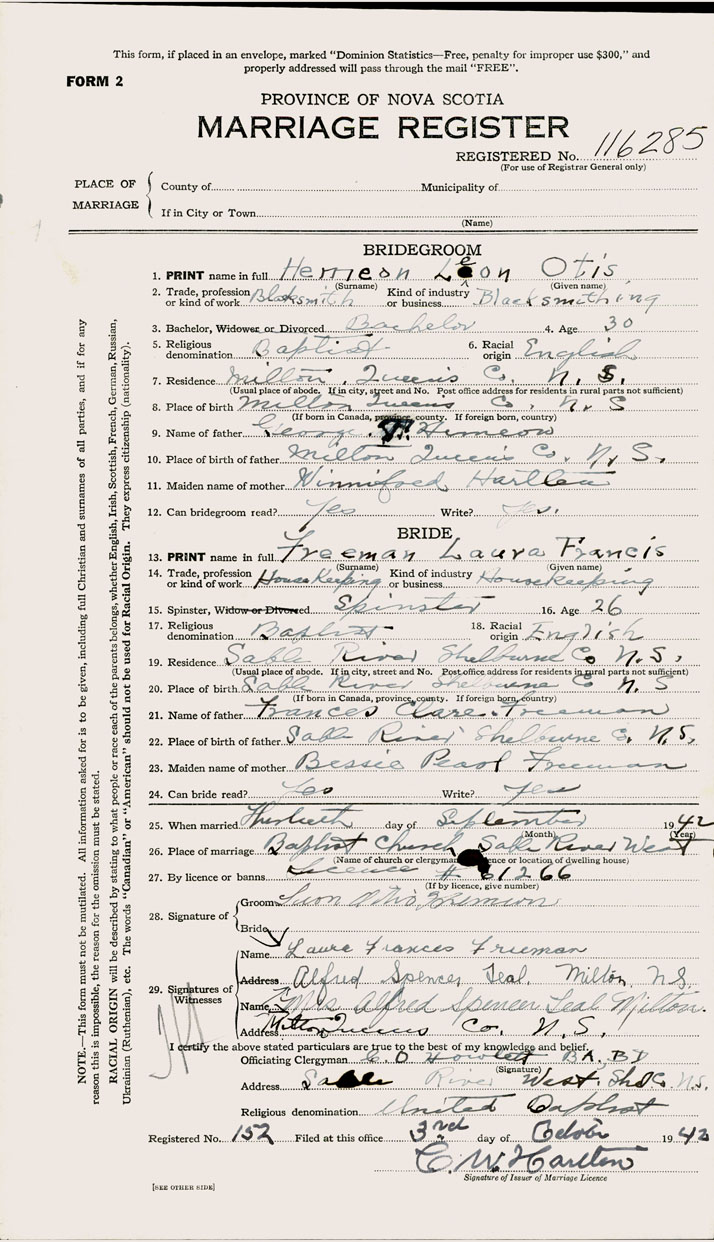 This form, if placed in an envelope, marked "Dominion Statistics—Free, penalty for improper use $300," and
properly addressed will pass through the mail "FREE".
FORM 2
PROVINCE OF NOVA SCOTIA
MARRIAGE REGISTER
REGISTERED No. 116285
(For use of Registrar General only)
PLACE OF MARRIAGE
County of Municipality of
If in City or Town
(Name)
NOTE.—This form must not be mutilated. All information asked for is to be given, including full Christian and surnames of all parties, and if for any
reason this is impossible, the reason for the omission must be stated.
RACIAL ORIGIN will be described by stating to what people or race each of the parents belongs, whether English, Irish, Scottish, French, German, Russian,
Ukrainian (Ruthenian), etc. The words "Canadian" or "American" should not be used for Racial Origin. They express citizenship (nationality).
BRIDEGROOM
1. PRINT name in full Hemeon Leon Otis
(Surname) (Given name)
2. Trade, profession or kind of work Blacksmith Kind of industry or business Blacksmithing
3. Bachelor, Widower or Divorced Bachelor 4. Age 30
5. Religious denomination Baptist 6. Racial origin English
7. Residence Milton, Queens Co. N. S.
(Usual place of abode. If in city, street and No. Post office address for residents in rural parts not sufficient)
8. Place of birth Milton Queens Co, N. S
(If born in Canada, province, county. If foreign born, country)
9. Name of father George Hemeon
10. Place of birth of father Milton Queens Co. N. S.
11. Maiden name of mother Winnifred Hartlen
12. Can bridegroom read? Yes Write? Yes.
BRIDE
13. PRINT name in full Freeman Laura Francis
(Surname) (Given name)
14. Trade, profession or kind of work HouseKeeping Kind of industry or business Housekeeping
15. Spinster, Widow or Divorced Spinster 16. Age 26
17. Religious denomination Baptist 18. Racial origin English
19. Residence Sable River Shelburne Co N. S.
(Usual place of abode. If in city, street and No. Post office address for residents in rural parts not sufficient)
20. Place of birth Sable River Shelburne Co N. S
(If born in Canada, province, county. If foreign born, country)
21. Name of father Frances Clare Freeman
22. Place of birth of father Sable River Shelburne Co, N. S.
23. Maiden name of mother Bessie Pearl Freeman
24. Can bride read? Yes Write? Yes
25. When married day of September 1942
(Month) (Year)
26. Place of marriage Baptist Church Sable River West
(Name of church or clergyman ence or location of dwelling house)
27. By licence or banns Licence # 1266
(If by licence, give number)
28. Signature of Groom Leon Otis Hemeon
Bride
29. Signatures of Witnesses Name Laura Frances Freeman
Address Alfred Spencer Teal. Milton, N.S.
Name Mrs Alfred Spencer Teal Milton.
Address Milton Queens Co. N. S.
I certify the above stated particulars are true to the best of my knowledge and belief.
Officiating Clergyman C. D Howlett BA. BD
(Signature)
Address Sable River West. Shel Co. N.S.
Religious denomination United Baptist
Registered No. 152 Filed at this office 3rd day of October 1942
C. W. Harlton
Signature of Issuer of Marriage Licence
[SEE OTHER SIDE]